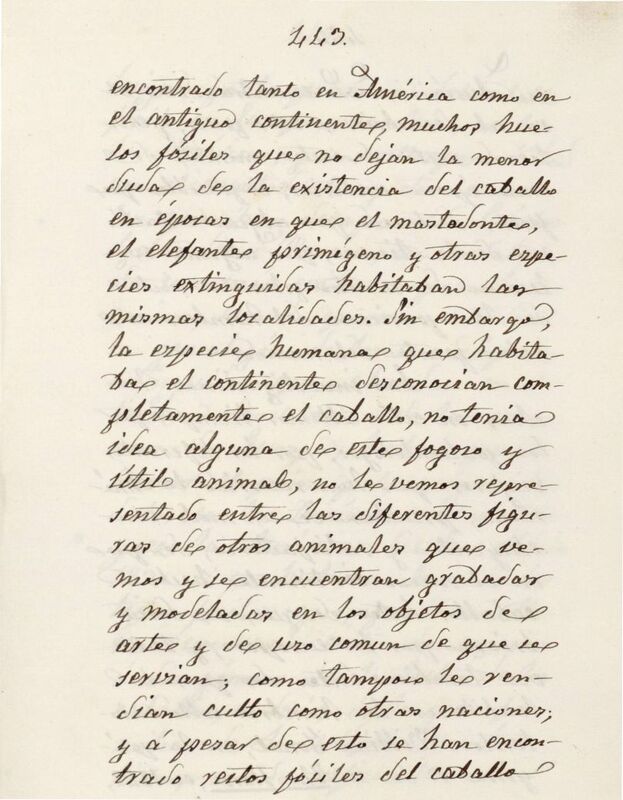 443.
encontrado tanto en América como en
el antiguo continente, muchos hue-
sos fósiles que no dejan la menor
duda de la existencia del caballo
en épocas en que el mastodonte,
el elefante primigeno y otras espe-
cies extinguidas habitaban las
mismas localidades. Sin embargo,
la especie humana que habita-
ba el continente desconocian com-
pletamente el caballo, no tenia
idea alguna de este fogoso y
útil animal, no le vemos repre-
sentado entre las diferentes figu-
ras de otros animales que ve-
mos y se encuentran grabadas
y modeladas en los objetos de
arte y de uso comun de que se
servian; como tampoco le ren-
dian culto como otras naciones;
y á pesar de esto se han encon-
trado restos fósiles del caballo